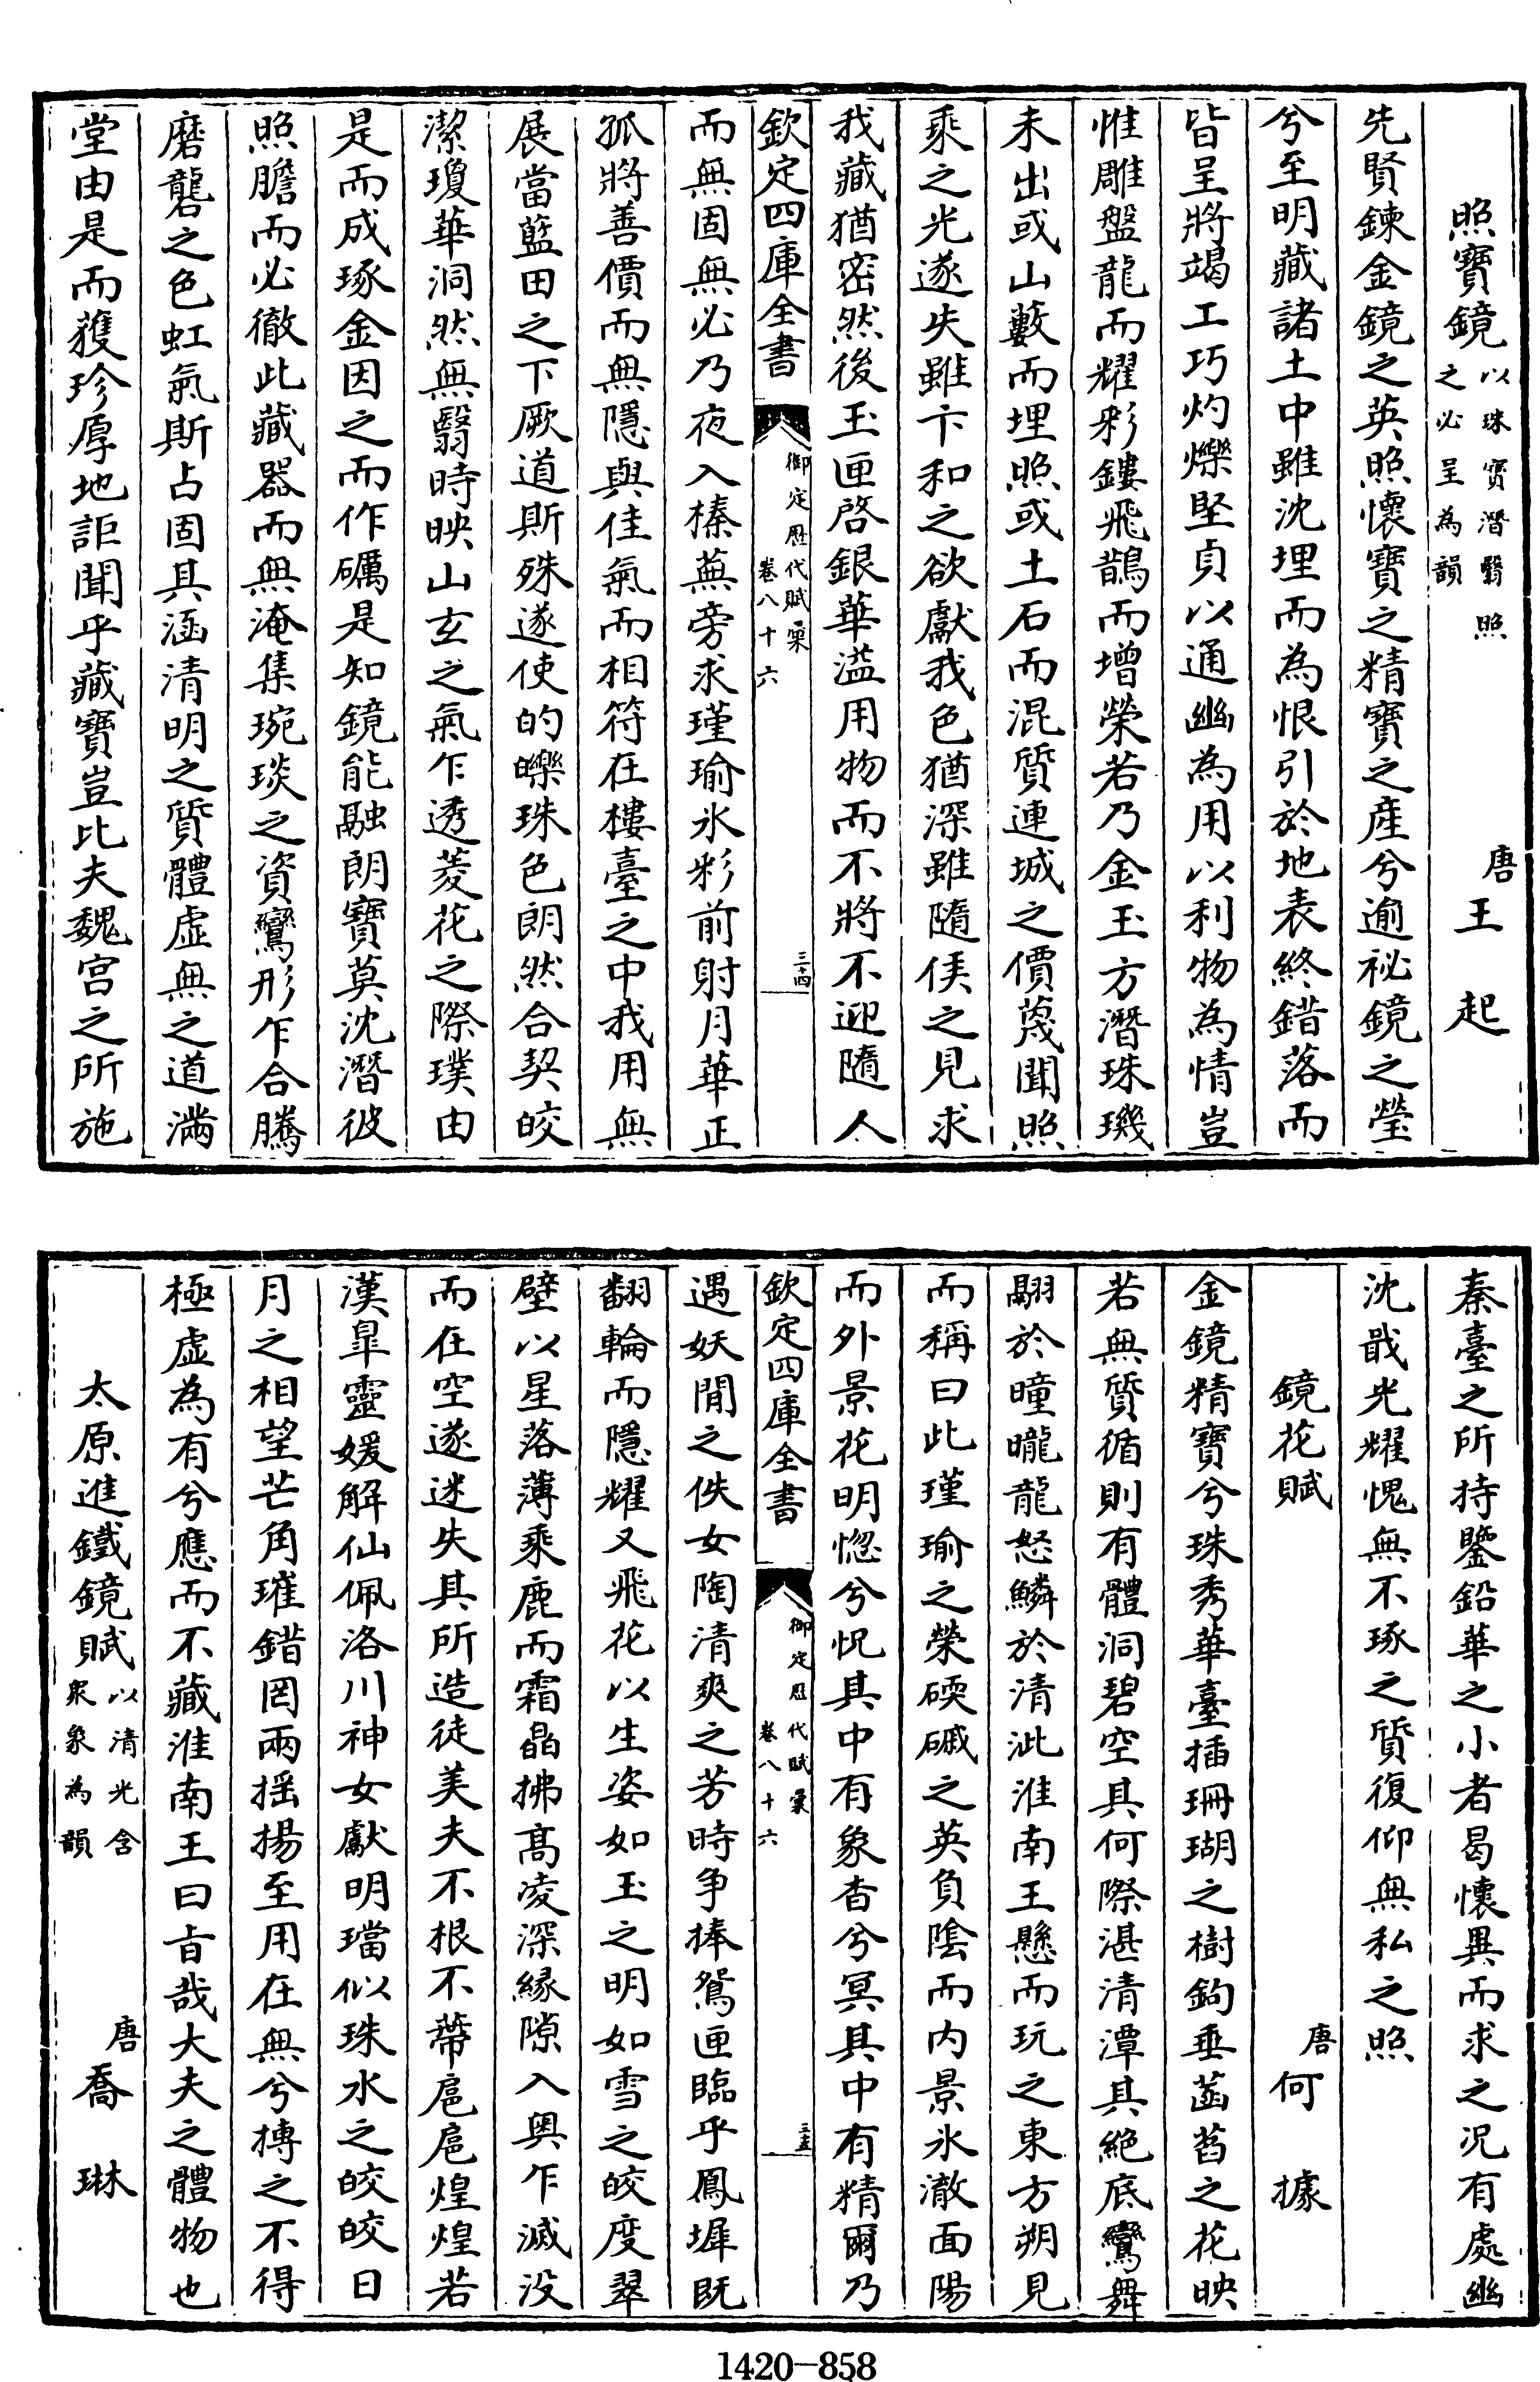 照寶鏡以珠寶潛翳照之必呈為韻 唐王起
先賢鍊金鏡之英照懷寶之精寶之產兮逾祕鏡之瑩
兮至明藏諸土中雖沈埋而為恨引於地表終錯落而
皆呈將竭工巧灼爍堅貞以通幽為用以利物為情豈
惟雕盤龍而耀彩鏤飛鵲而增榮若乃金玉方潛珠璣
未出或山藪而埋照或土石而混質連城之價蔑聞照
乘之光遂失雖卞和之欲獻我色猶深雖隨侯之見求
我藏猶密然後玉匣啓銀華溢用物而不將不迎隨人
欽定四庫全書 御定歷代賦彙卷八十六 三十四
而無固無必乃夜入榛蕪旁求瑾瑜氷彩前射月華正
孤將善價而無隱與佳氣而相符在樓臺之中我用無
展當藍田之下厥道斯殊遂使的皪珠色朗然合契皎
潔瓊華洞然無翳時映山玄之氣乍透菱花之際璞由
是而成琢金因之而作礪是知鏡能融朗寶莫沈潛彼
照膽而必徹此藏器而無淹集琬琰之資鸞形乍合騰
磨礱之色虹氣斯占固其涵清明之質體虛無之道滿
堂由是而獲珍厚地詎聞乎藏寶豈比夫魏宮之所施
秦臺之所持鑒鉛華之小者曷懷異而求之況有處幽
沈戢光耀愧無不琢之質復仰無私之照
鏡花賦 唐何據
金鏡精寶兮珠秀華臺插珊瑚之樹鉤垂菡萏之花映
若無質循則有體洞碧空其何際湛清潭其絕底鸞舞
翾於曈曨龍怒鱗於清泚淮南王懸而玩之東方朔見
而稱曰此瑾瑜之榮碝磩之英負陰而內景氷澈面陽
而外景花明惚兮怳其中有象杳兮冥其中有精爾乃
欽定四庫全書 御定歷代賦彙卷八十六 三十五
遇妖閒之佚女陶清爽之芳時爭捧鴛匣臨乎鳳墀既
翻輪而隱耀又飛花以生姿如玉之明如雪之皎度翠
壁以星落薄乘鹿而霜晶拂高凌深緣隙入奧乍滅没
而在空遂迷失其所造徒美夫不根不蔕扈扈煌煌若
漢皐靈媛解仙佩洛川神女獻明璫似珠水之皎皎日
月之相望芒角璀錯罔兩揺揚至用在無兮摶之不得
極虛為有兮應而不藏淮南王曰旨哉大夫之體物也
太原進鐵鏡賦以清光含衆象為韻 唐喬琳
1420-858